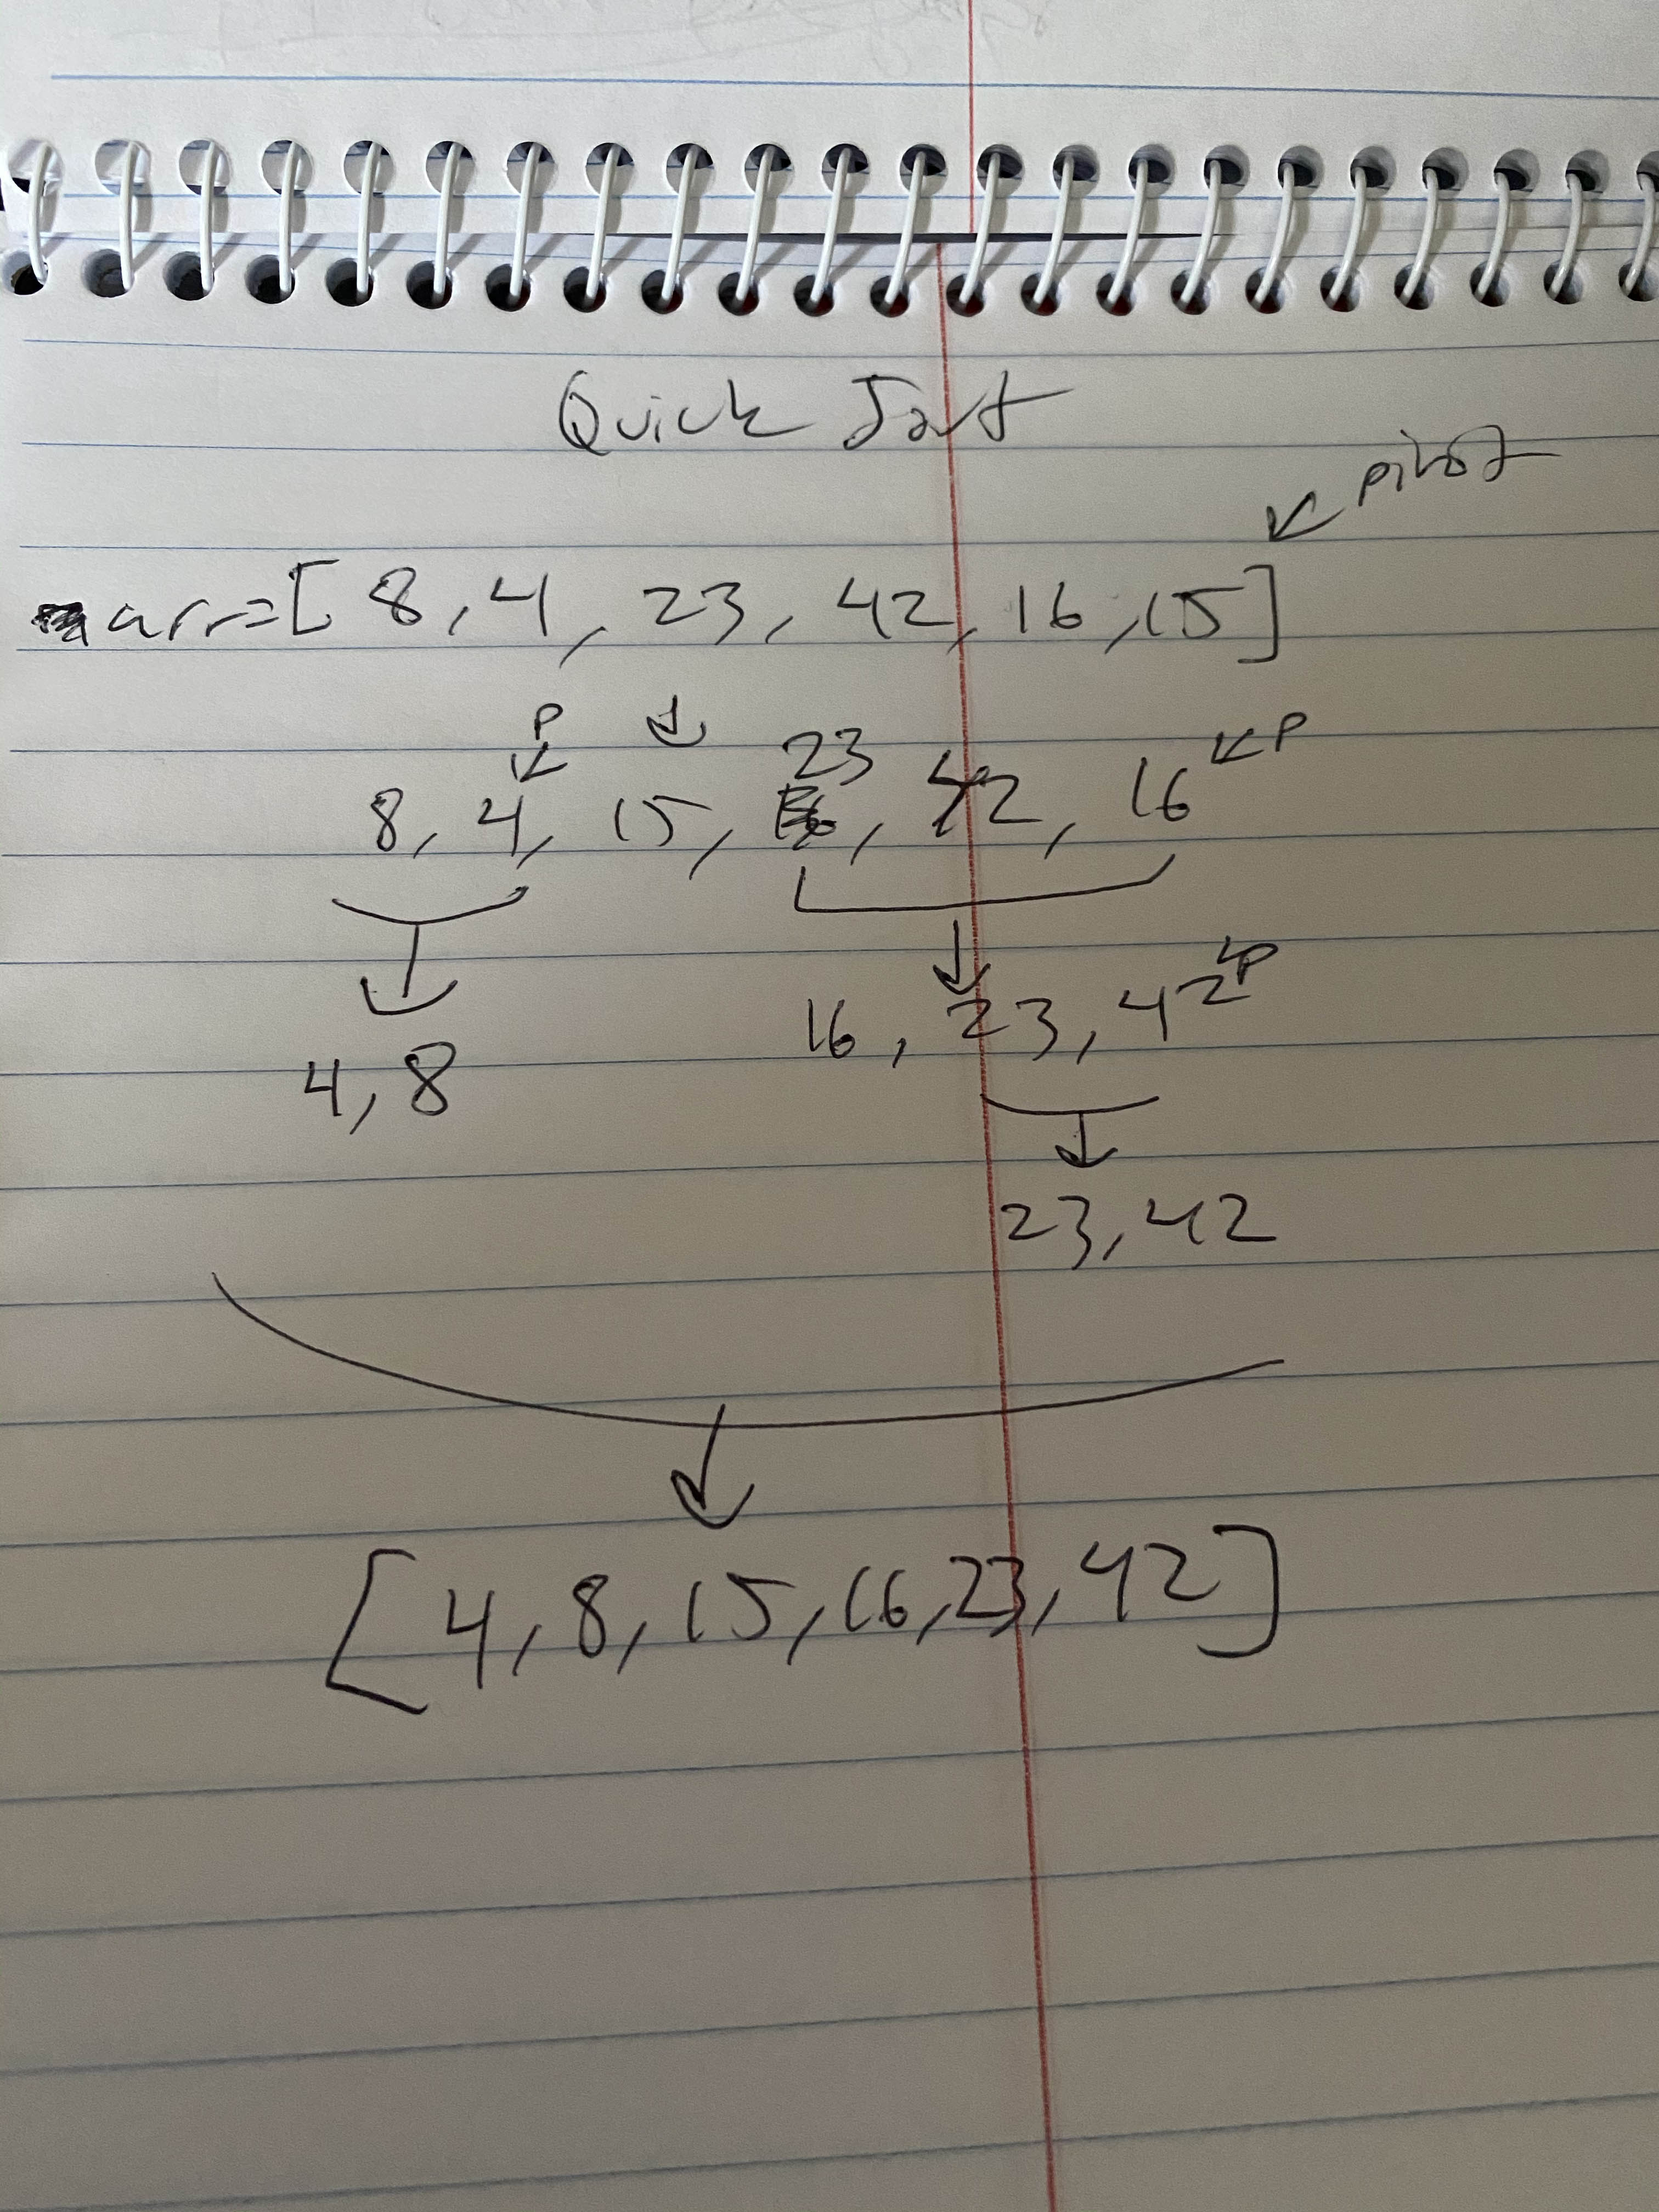 Quick Sort
pivot
arr=[8,4,23,42,16,15]
P
23
P
8,4,15,42,16
P
16,23,42
4,8
23,42
[4,8,15,16,23,42]